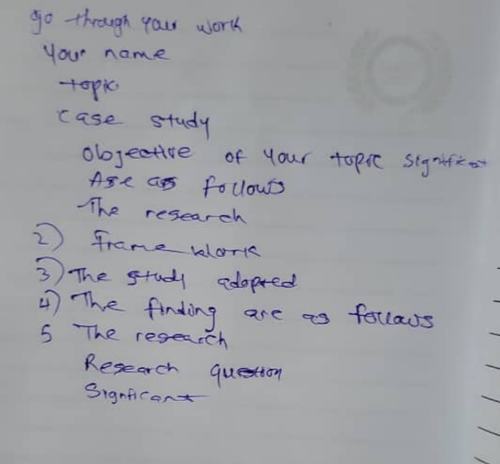 go through your work
Your name
topic
case study
objective of your topic significant
Are as follows
The research
2) Frame work
3) The study adopted
4) The finding are as follows
5 The research
Research question
Significant